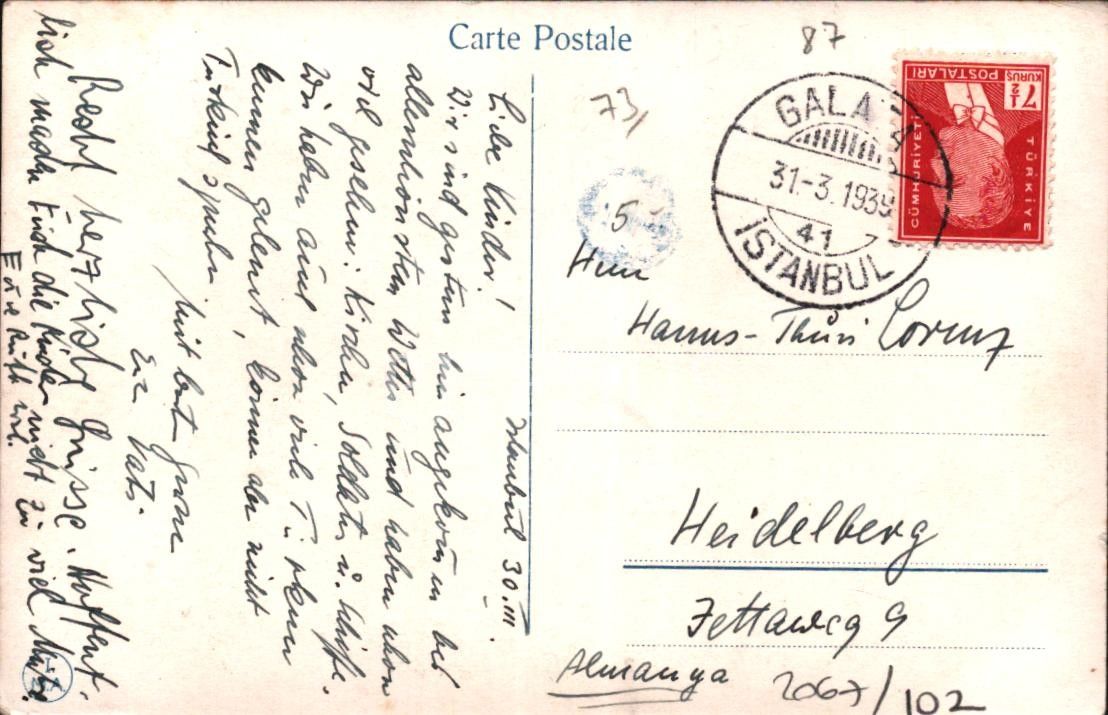 Carte Postale
87
73/
5
GALATA
31-3.1939
41
ISTANBUL
POSTALARI
7½
KURUŞ
CÜMHURİYETİ
TÜRKİYE
Herrn
Hanns-Lorenz
Heidelberg
Zettaweg 9
Almanya
2067/102
Istanbul 30.III.
Liebe Kinder!
Wir sind gestern hier angekommen bei
allerschönstem Wetter und haben schon
viel gesehen: Kirchen, Soldaten u. Schiffe.
Wir haben auch schon viele Türken
kennen gelernt, können aber nicht
Türkisch sprechen
mit Gruss
Vati.
Recht herzliche Grüsse. Hoffent-
lich machen Euch die Kinder nicht zu viel Mühe.
Eure Ruth